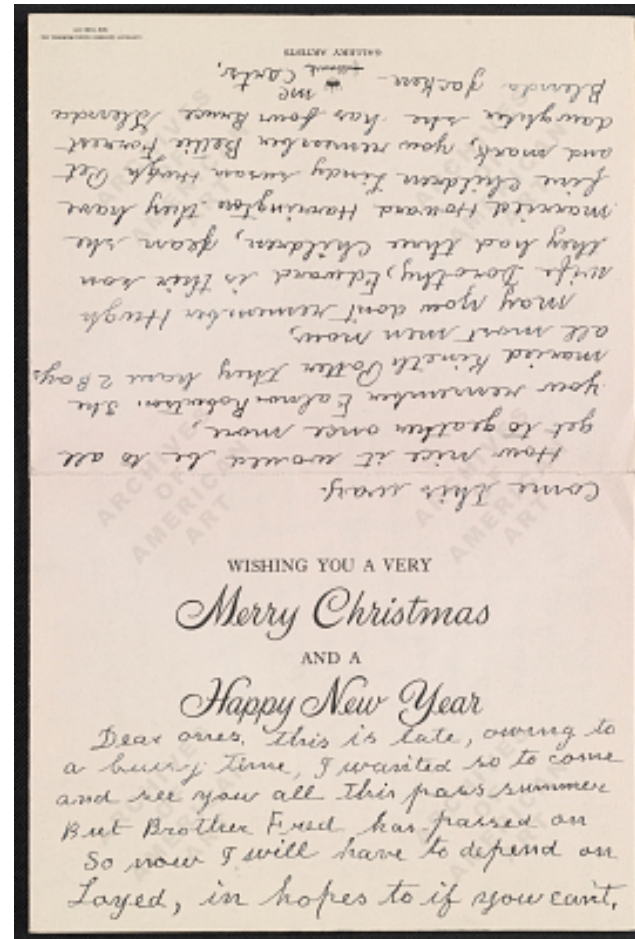 WISHING YOU A VERY
Merry Christmas
AND A
Happy New Year
Dear ones. this is late, owing to
a busy time, I wanited so to come
and see you all this pass summer
But Brother Fred has passed on
So now I will have to depend on
Loyed, in hopes to if you can't,
Come this way.
How nice it would be to all
get to geather once more,
you remember Ealnor Robertson. she
married Kineth Potter they have 2 Boys
all most men now,
may you dont remember Hugh
wife Dorothy, Edward is their son
they had three children, Jean she
married Howard Harrington they have
five children Lindy susan Hugh Pet
and mark, you remember Bellie Forrest
daughter she has four Bruce Glenda
Blenda Jacken
me Carts,
GALLERY ARTISTS
ARCHIVES
OF
AMERICAN
ART